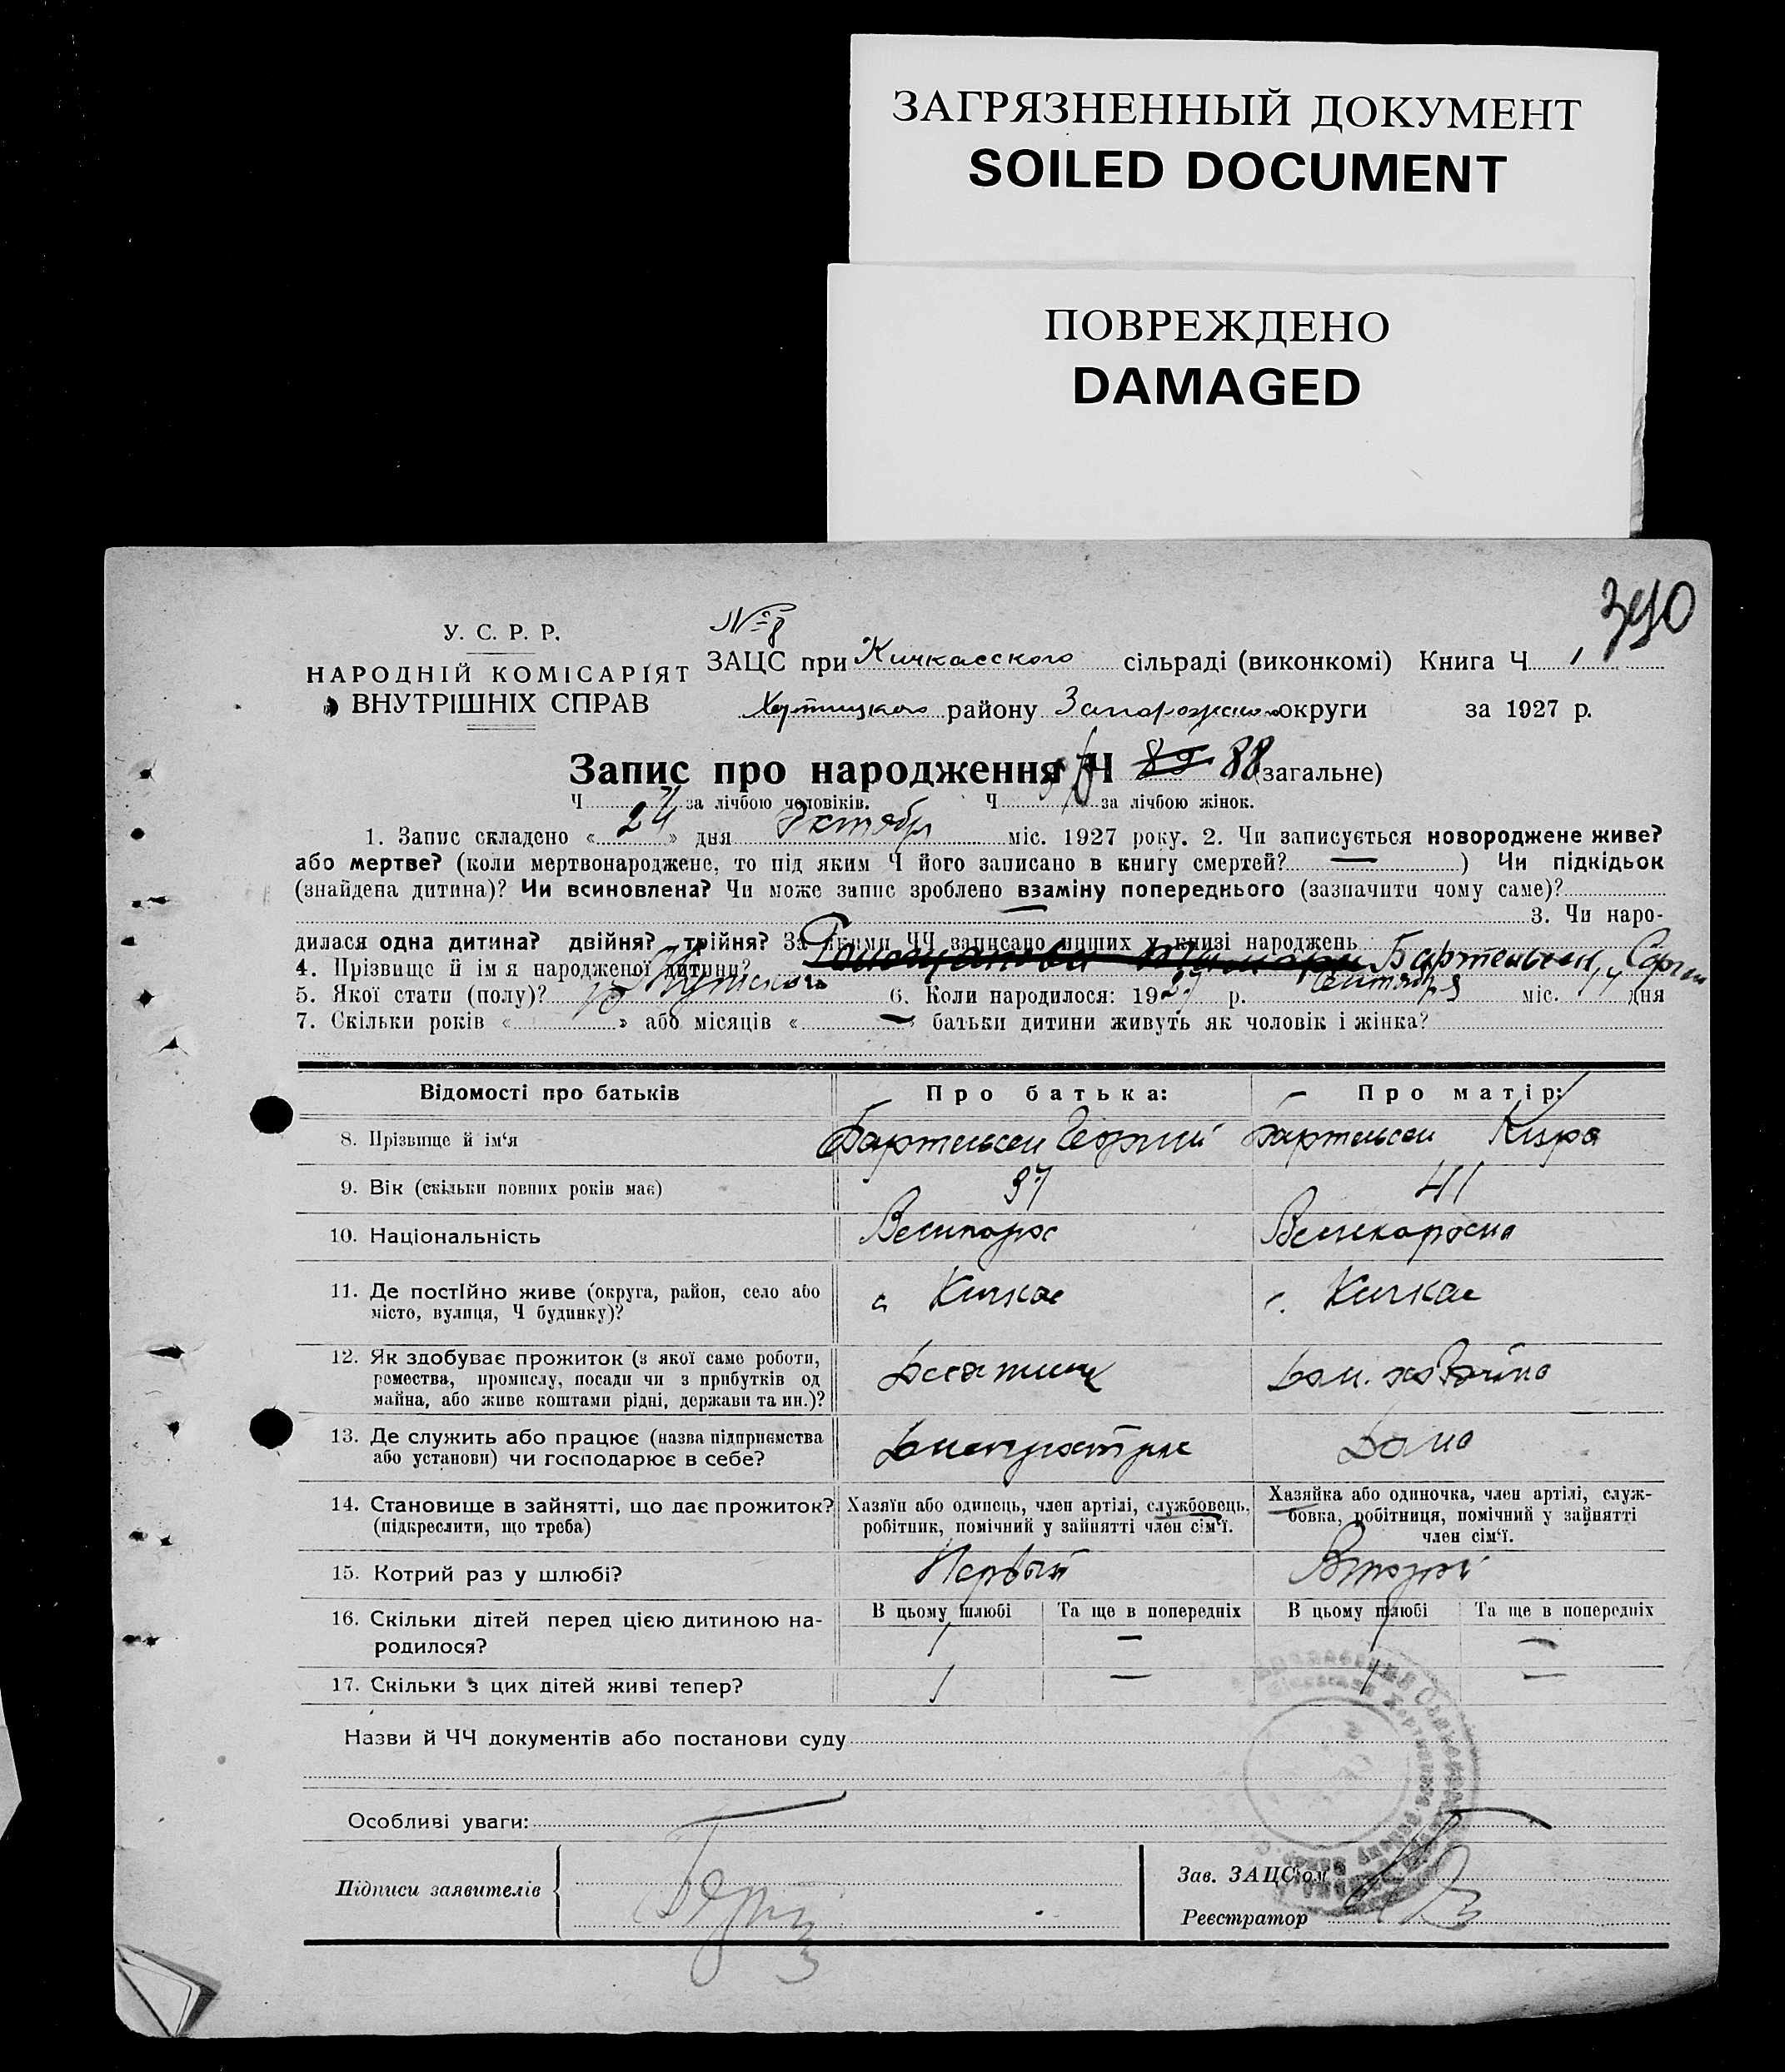 ЗАГРЯЗНЕННЫЙ ДОКУМЕНТ
SOILED DOCUMENT
ПОВРЕЖДЕНО
DAMAGED
390
У. С. Р. Р.
НАРОДНІЙ КОМІСАРІЯТ
ВНУТРІШНІХ СПРАВ
№ 8
ЗАЦС при Кичкасского сільраді (виконкомі) Книга Ч 1
Хортицкого району Запорожского округи за 1927 р.
Запис про народження Ч 89 88 (загальне)
Ч за лічбою чоловіків. Ч за лічбою жінок.
1. Запис складено « 24 » дня Октября міс. 1927 року. 2. Чи записується новороджене живе?
або мертве? (коли мертвонароджене, то під яким Ч його записано в книгу смертей? — ) Чи підкідьок
(знайдена дитина)? Чи всиновлена? Чи може запис зроблено взаміну попереднього (зазначити чому саме)?
3. Чи наро-
дилася одна дитина? двійня? трійня? За якими ЧЧ записано инших у книзі народжень
4. Прізвище й ім я народженої дитини? Бартельсен
5. Якої стати (полу)? Мужского 6. Коли народилося: 1927 р. Сентября міс. 14 дня
7. Скільки років « » або місяців « — » батьки дитини живуть як чоловік і жінка?
Відомості про батьків Про батька: Про матір:
8. Прізвище й ім‘я Бартельсен Георгий Бартельсен Кира
9. Вік (скільки повних років має) 37 41
10. Національність Великорос Великороска
11. Де постІйно живе (округа, район, село або с Кичкас с. Кичкас
місто, вулиця, Ч будинку)?
12. Як здобуває прожиток (з якої саме роботи,
ремества, промислу, посади чи з прибутків од
майна, або живе коштами рідні, держави та ин.)?
13. Де служить або працює (назва підприємства Днепрострое Дома
або установи) чи господарює в себе?
14. Становище в зайнятті, що дає прожиток? Хазяїн або одинець, член артілі, службовець, Хазяйка або одиночка, член артілі, служ-
(підкреслити, що треба) робітник, помічний у зайнятті член сім‘ї. бовка, робітниця, помічний у зайнятті
член сім‘ї.
15. Котрий раз у шлюбі? Первый Второй
16. Скільки дітей перед цією дитиною на- В цьому шлюбі Та ще в попередніх В цьому шлюбі Та ще в попередніх
родилося? 1 — 1 —
17. Скільки з цих дітей живі тепер? 1 — 1 —
Назви й ЧЧ документів або постанови суду
Особливі уваги:
Підписи заявителів
Зав. ЗАЦС‘ом
Реєстратор